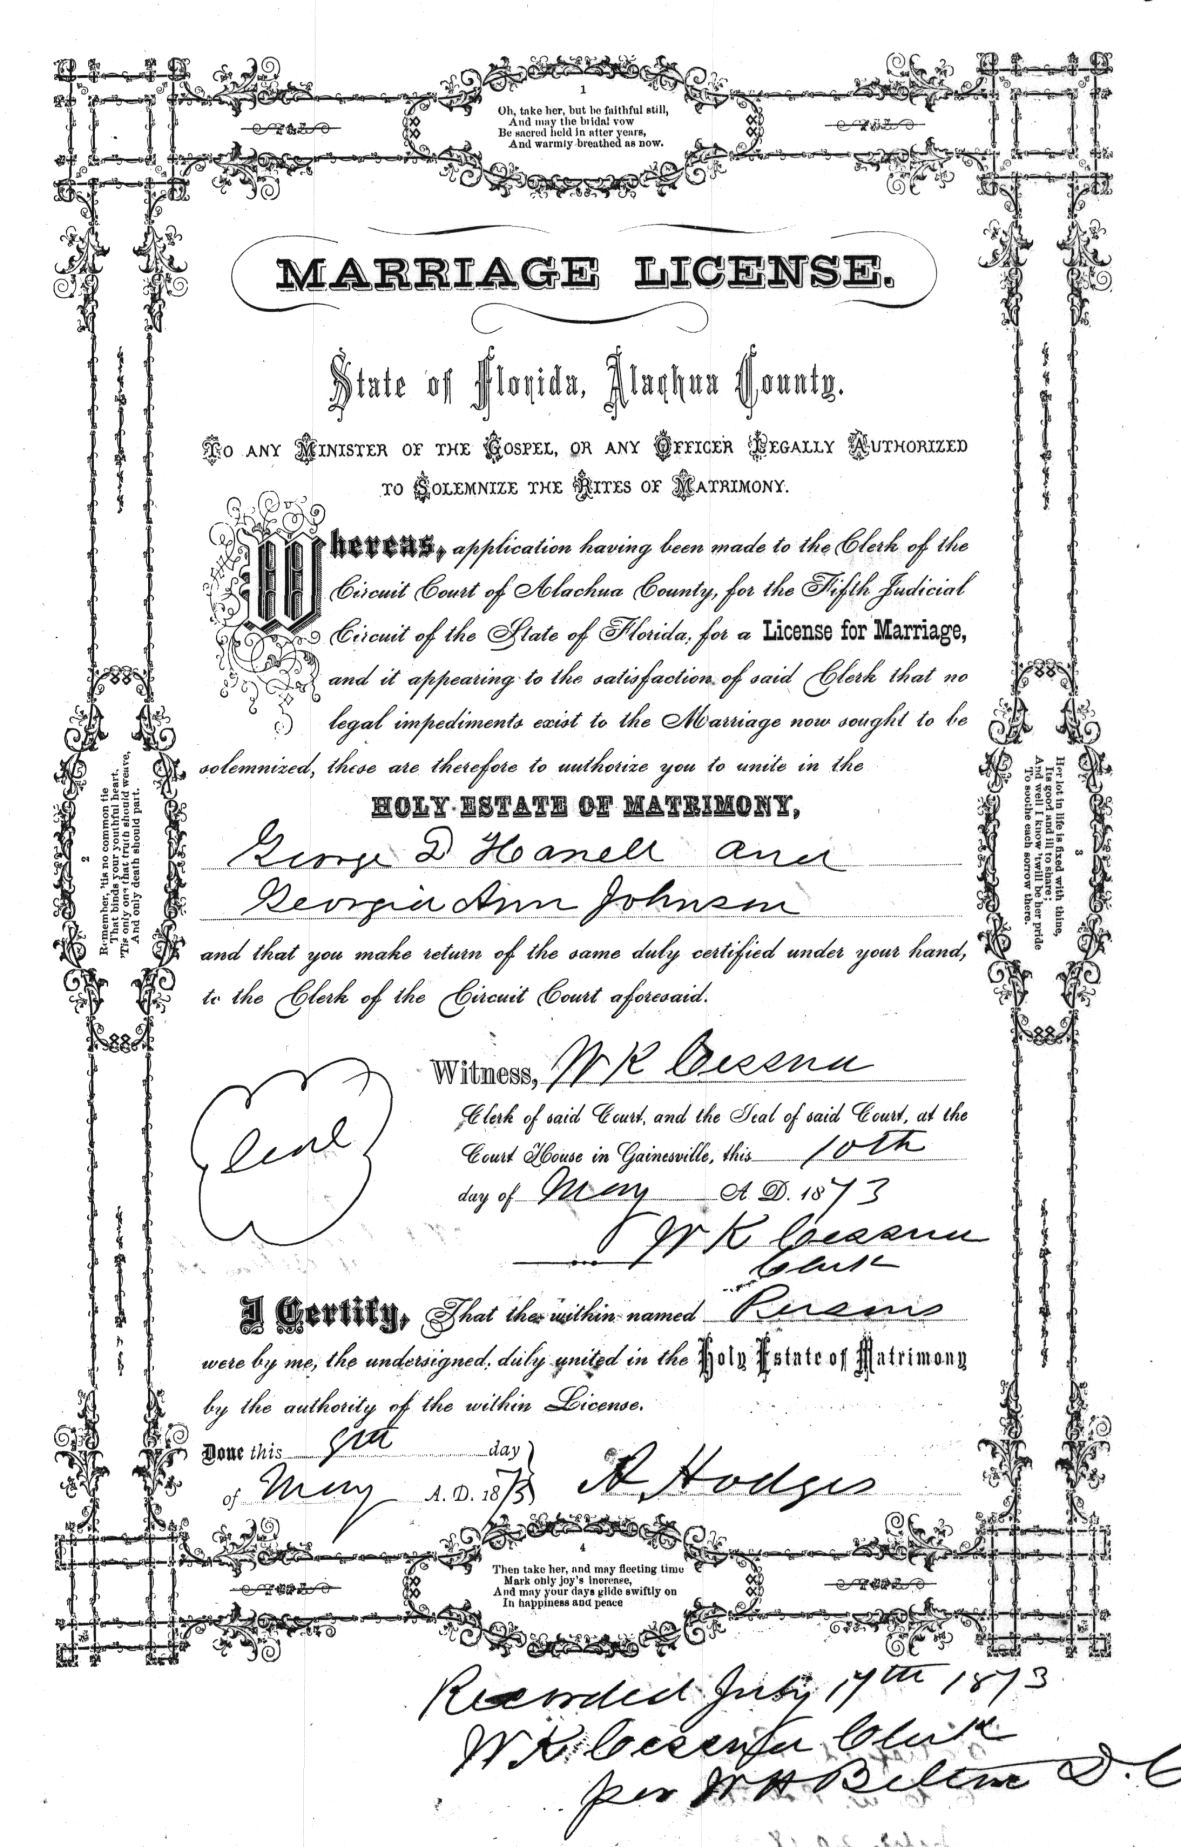 1
Oh, take her, but be faithful still,
And may the bridal vow
Be sacred held in after years,
And warmly breathed as now.
MARRIAGE LICENSE.
State of Florida, Alachua County.
TO ANY MINISTER OF THE GOSPEL, OR ANY OFFICER LEGALLY AUTHORIZED
TO SOLEMNIZE THE RITES OF MATRIMONY.
Whereas, application having been made to the Clerk of the
Circuit Court of Alachua County, for the Fifth Judicial
Circuit of the State of Florida, for a License for Marriage,
and it appearing to the satisfaction of said Clerk that no
legal impediments exist to the Marriage now sought to be
solemnized, these are therefore to authorize you to unite in the
HOLY ESTATE OF MATRIMONY,
George D and
Georgia Ann Johnson
and that you make return of the same duly certified under your hand,
to the Clerk of the Circuit Court aforesaid.
2
Remember, 'tis no common tie
That binds your youthful heart,
'Tis only one that truth should weave,
And only death should part.
3
Her lot in life is fixed with thine,
Its good and ill to share;
And well I know 'twill be her pride
To soothe each sorrow there.
Seal
Witness, W K Cessna
Clerk of said Court, and the Seal of said Court, at the
Court House in Gainesville, this 10th
day of May A. D. 1873
W K Cessna
Clerk
I Certify, That the within named Persons
were by me, the undersigned, duly united in the Holy Estate of Matrimony
by the authority of the within License.
Done this day
of May A. D. 1873 A, Hodges
4
Then take her, and may fleeting time
Mark only joy's increase,
And may your days glide swiftly on
In happiness and peace
Recorded July 17th 1873
W K Cessna Clerk
per W H D. C